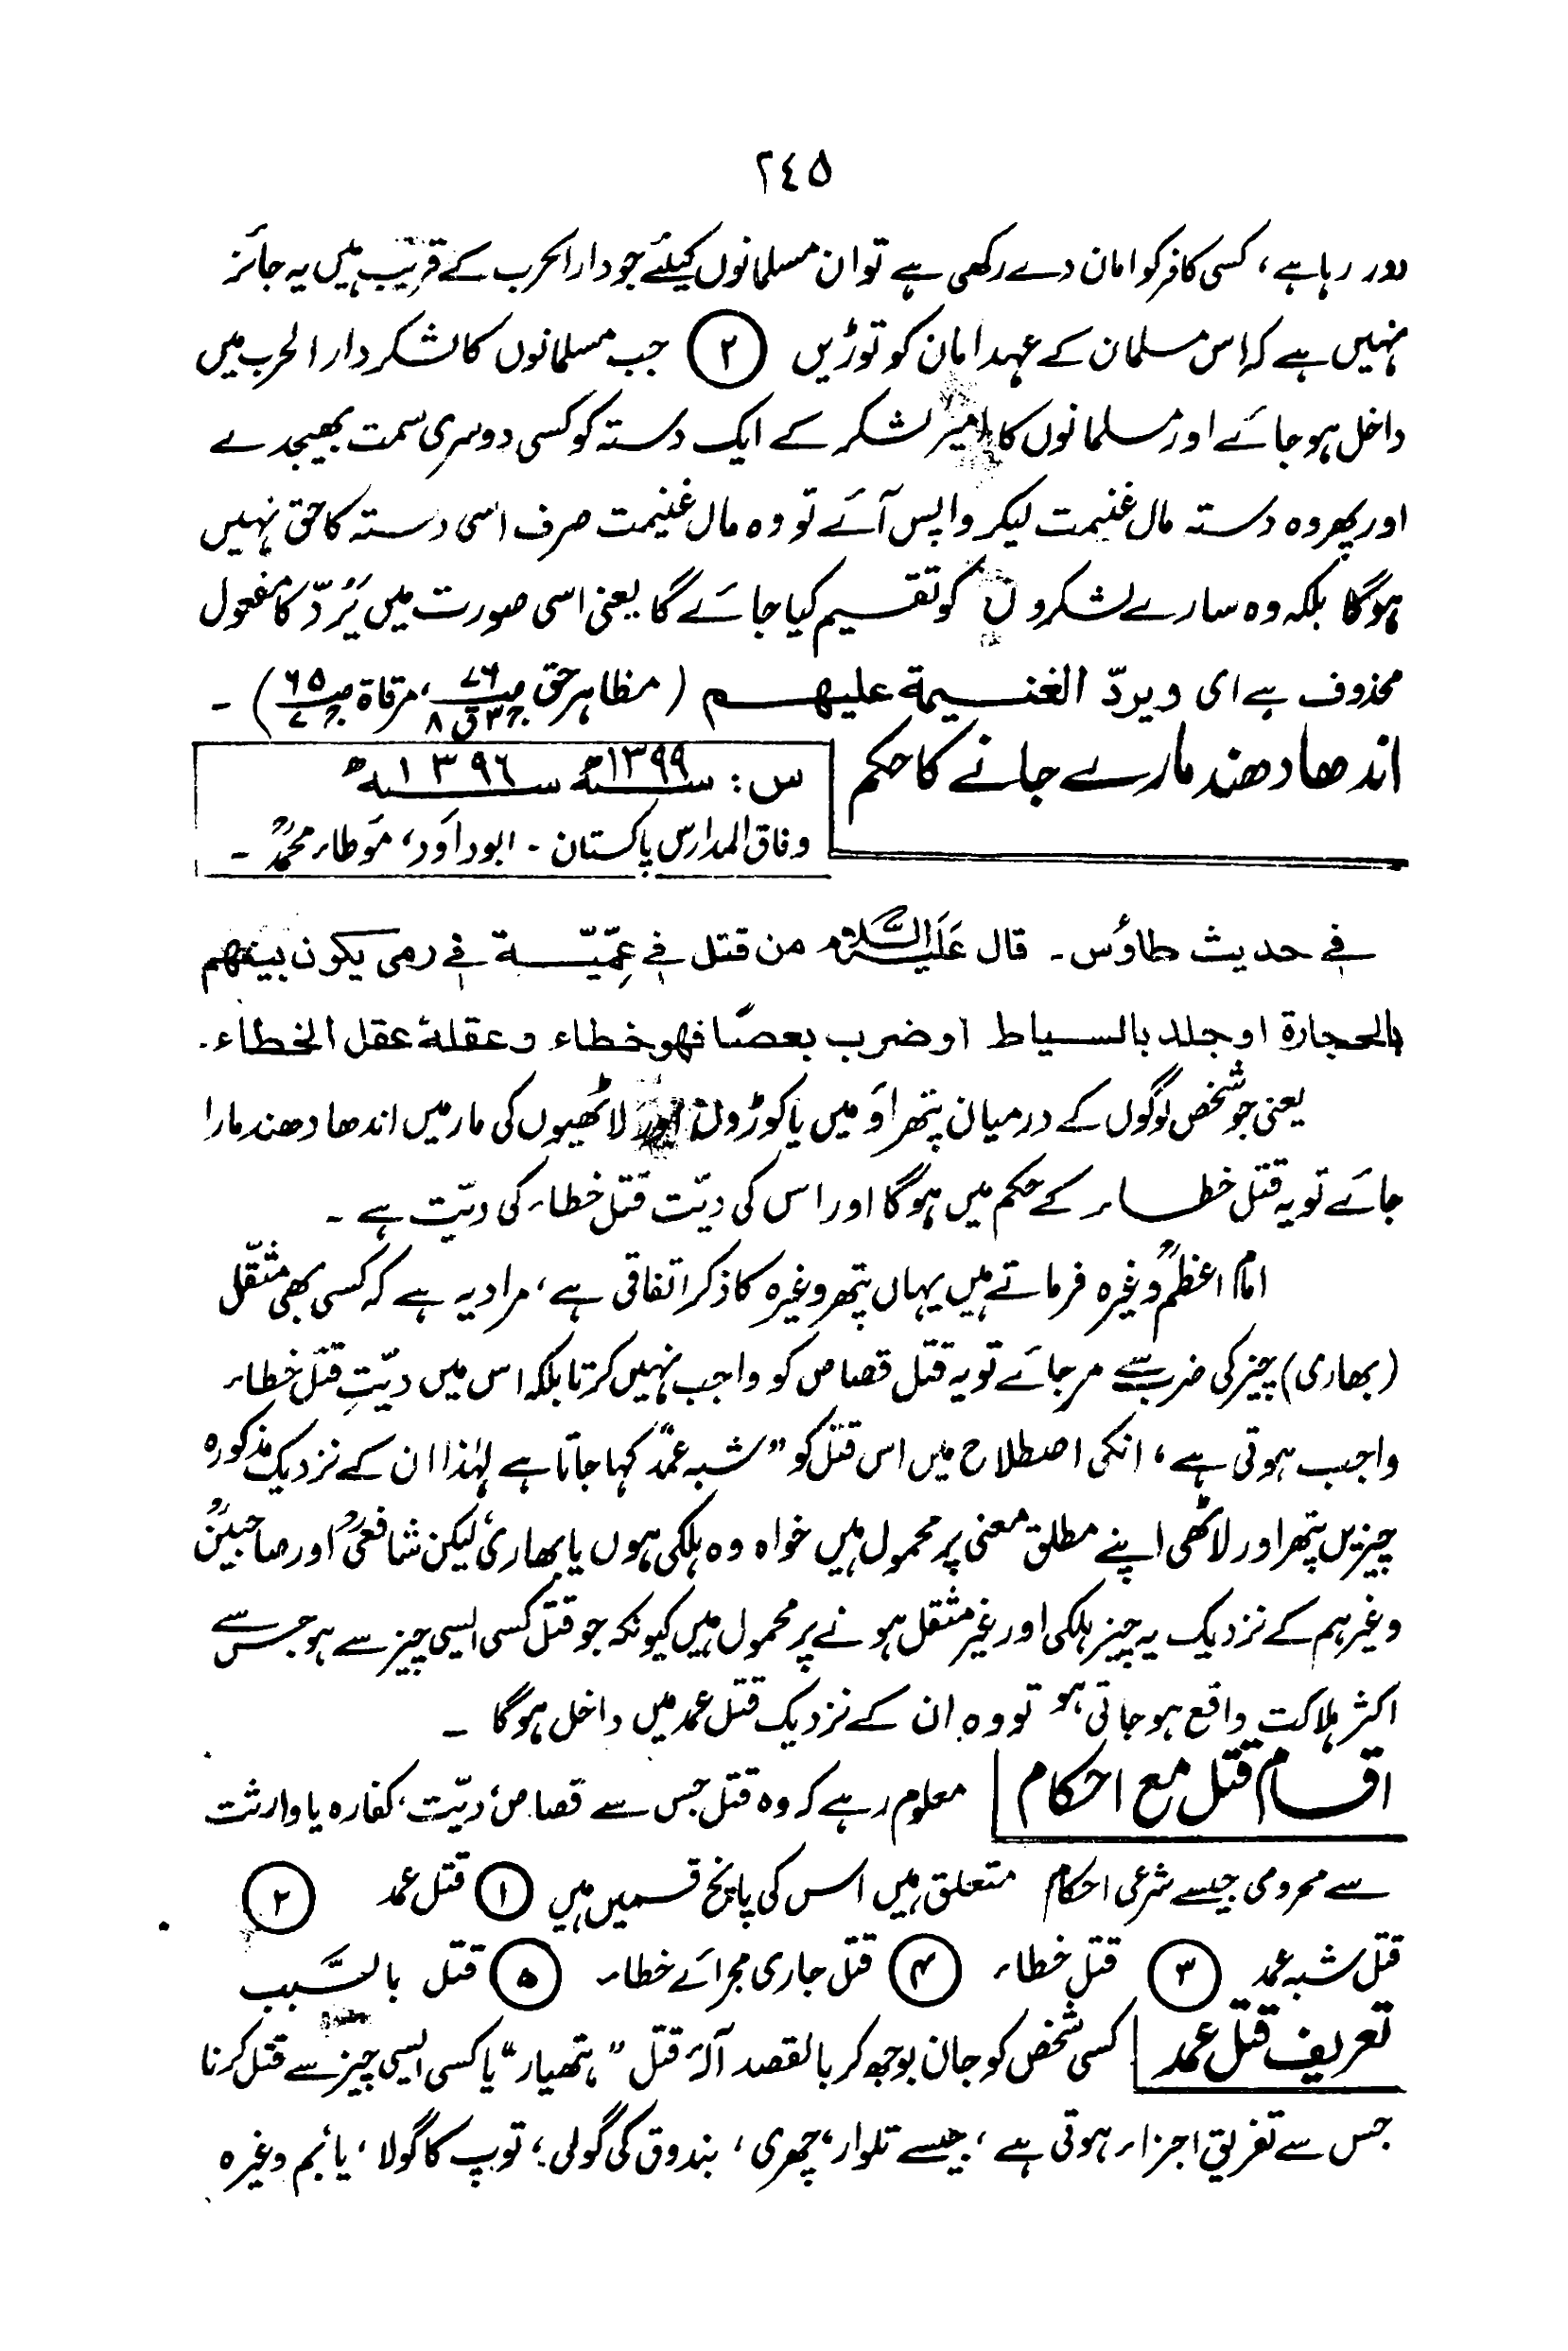 ٢٤٥
دور رہا ہے، کسی کافر کو امان دے رکھی ہے تو ان مسلمانوں کیلئے جو دار الحرب کے قریب ہیں یہ جائز
نہیں ہے کہ اس مسلمان کے عہد امان کو توڑیں (٢) جب مسلمانوں کا لشکر دار الحرب میں
داخل ہو جائے اور مسلمانوں کا امیر لشکر کے ایک دستہ کو کسی دوسری سمت بھیجدے
اور پھر وہ دستہ مال غنیمت لیکر واپس آئے تو وہ مال غنیمت صرف اسی دستہ کا حق نہیں
ہوگا بلکہ وہ سارے لشکروں کو تقسیم کیا جائے گا یعنی اسی صورت میں یُرَدّ کا مفعول
محذوف ہے ای ویردّ الغنیمة علیهم (مظاہر حق ، مرقاۃ) ۔
اندھا دھند مارے جانے کا حکم
س: سنہ ١٣٩٩ھ سنہ ١٣٩٦ھ
وفاق المدارس پاکستان ۔ ابوداؤد، مؤطاء محمدؒ ۔
فی حدیث طاؤس ۔ قال عَلَیہِ السَّلام من قتل فی عِمِّیّة فی رمی یکون بینهم
بالحجارة او جلد بالسیاط او ضرب بعصًا فهو خطاء وعقلهٔ عقل الخطاء ۔
یعنی جو شخص لوگوں کے درمیان پتھراؤ میں یا کوڑوں اور لاٹھیوں کی مار میں اندھا دھند مارا
جائے تو یہ قتل خطاء کے حکم میں ہوگا اور اس کی دیّت قتل خطاء کی دیّت ہے ۔
امام اعظمؒ وغیرہ فرماتے ہیں یہاں پتھر وغیرہ کا ذکر اتفاقی ہے، مراد یہ ہے کہ کسی بھی مثقّل
(بھاری) چیز کی ضرب سے مر جائے تو یہ قتل قصاص کو واجب نہیں کرتا بلکہ اس میں دیّتِ قتل خطاء
واجب ہوتی ہے، انکی اصطلاح میں اس قتل کو ”شبہ عمد“ کہا جاتا ہے لہٰذا ان کے نزدیک مذکورہ
چیزیں پتھر اور لاٹھی اپنے مطلق معنی پر محمول ہیں خواہ وہ ہلکی ہوں یا بھاری، لیکن شافعیؒ اور صاحبینؒ
وغیرہم کے نزدیک یہ چیز ہلکی اور غیر مثقل ہونے پر محمول ہیں کیونکہ جو قتل کسی ایسی چیز سے ہو جس سے
اکثر ہلاکت واقع ہو جاتی ہو تو وہ ان کے نزدیک قتل عمد میں داخل ہوگا ۔
اقسام قتل مع احکام
معلوم رہے کہ وہ قتل جس سے قصاص، دیّت، کفارہ یا وارثت
سے محرومی جیسے شرعی احکام متعلق ہیں اس کی پانچ قسمیں ہیں (١) قتل عمد (٢)
قتل شبہ عمد (٣) قتل خطاء (٤) قتل جاری مجرائے خطاء (٥) قتل بالسَّبب
تعریف قتل عمد
کسی شخص کو جان بوجھ کر بالقصد آلۂ قتل ”ہتھیار“ یا کسی ایسی چیز سے قتل کرنا
جس سے تفریق اجزاء ہوتی ہے، جیسے تلوار، چھری، بندوق کی گولی، توپ کا گولا، یا بم وغیرہ